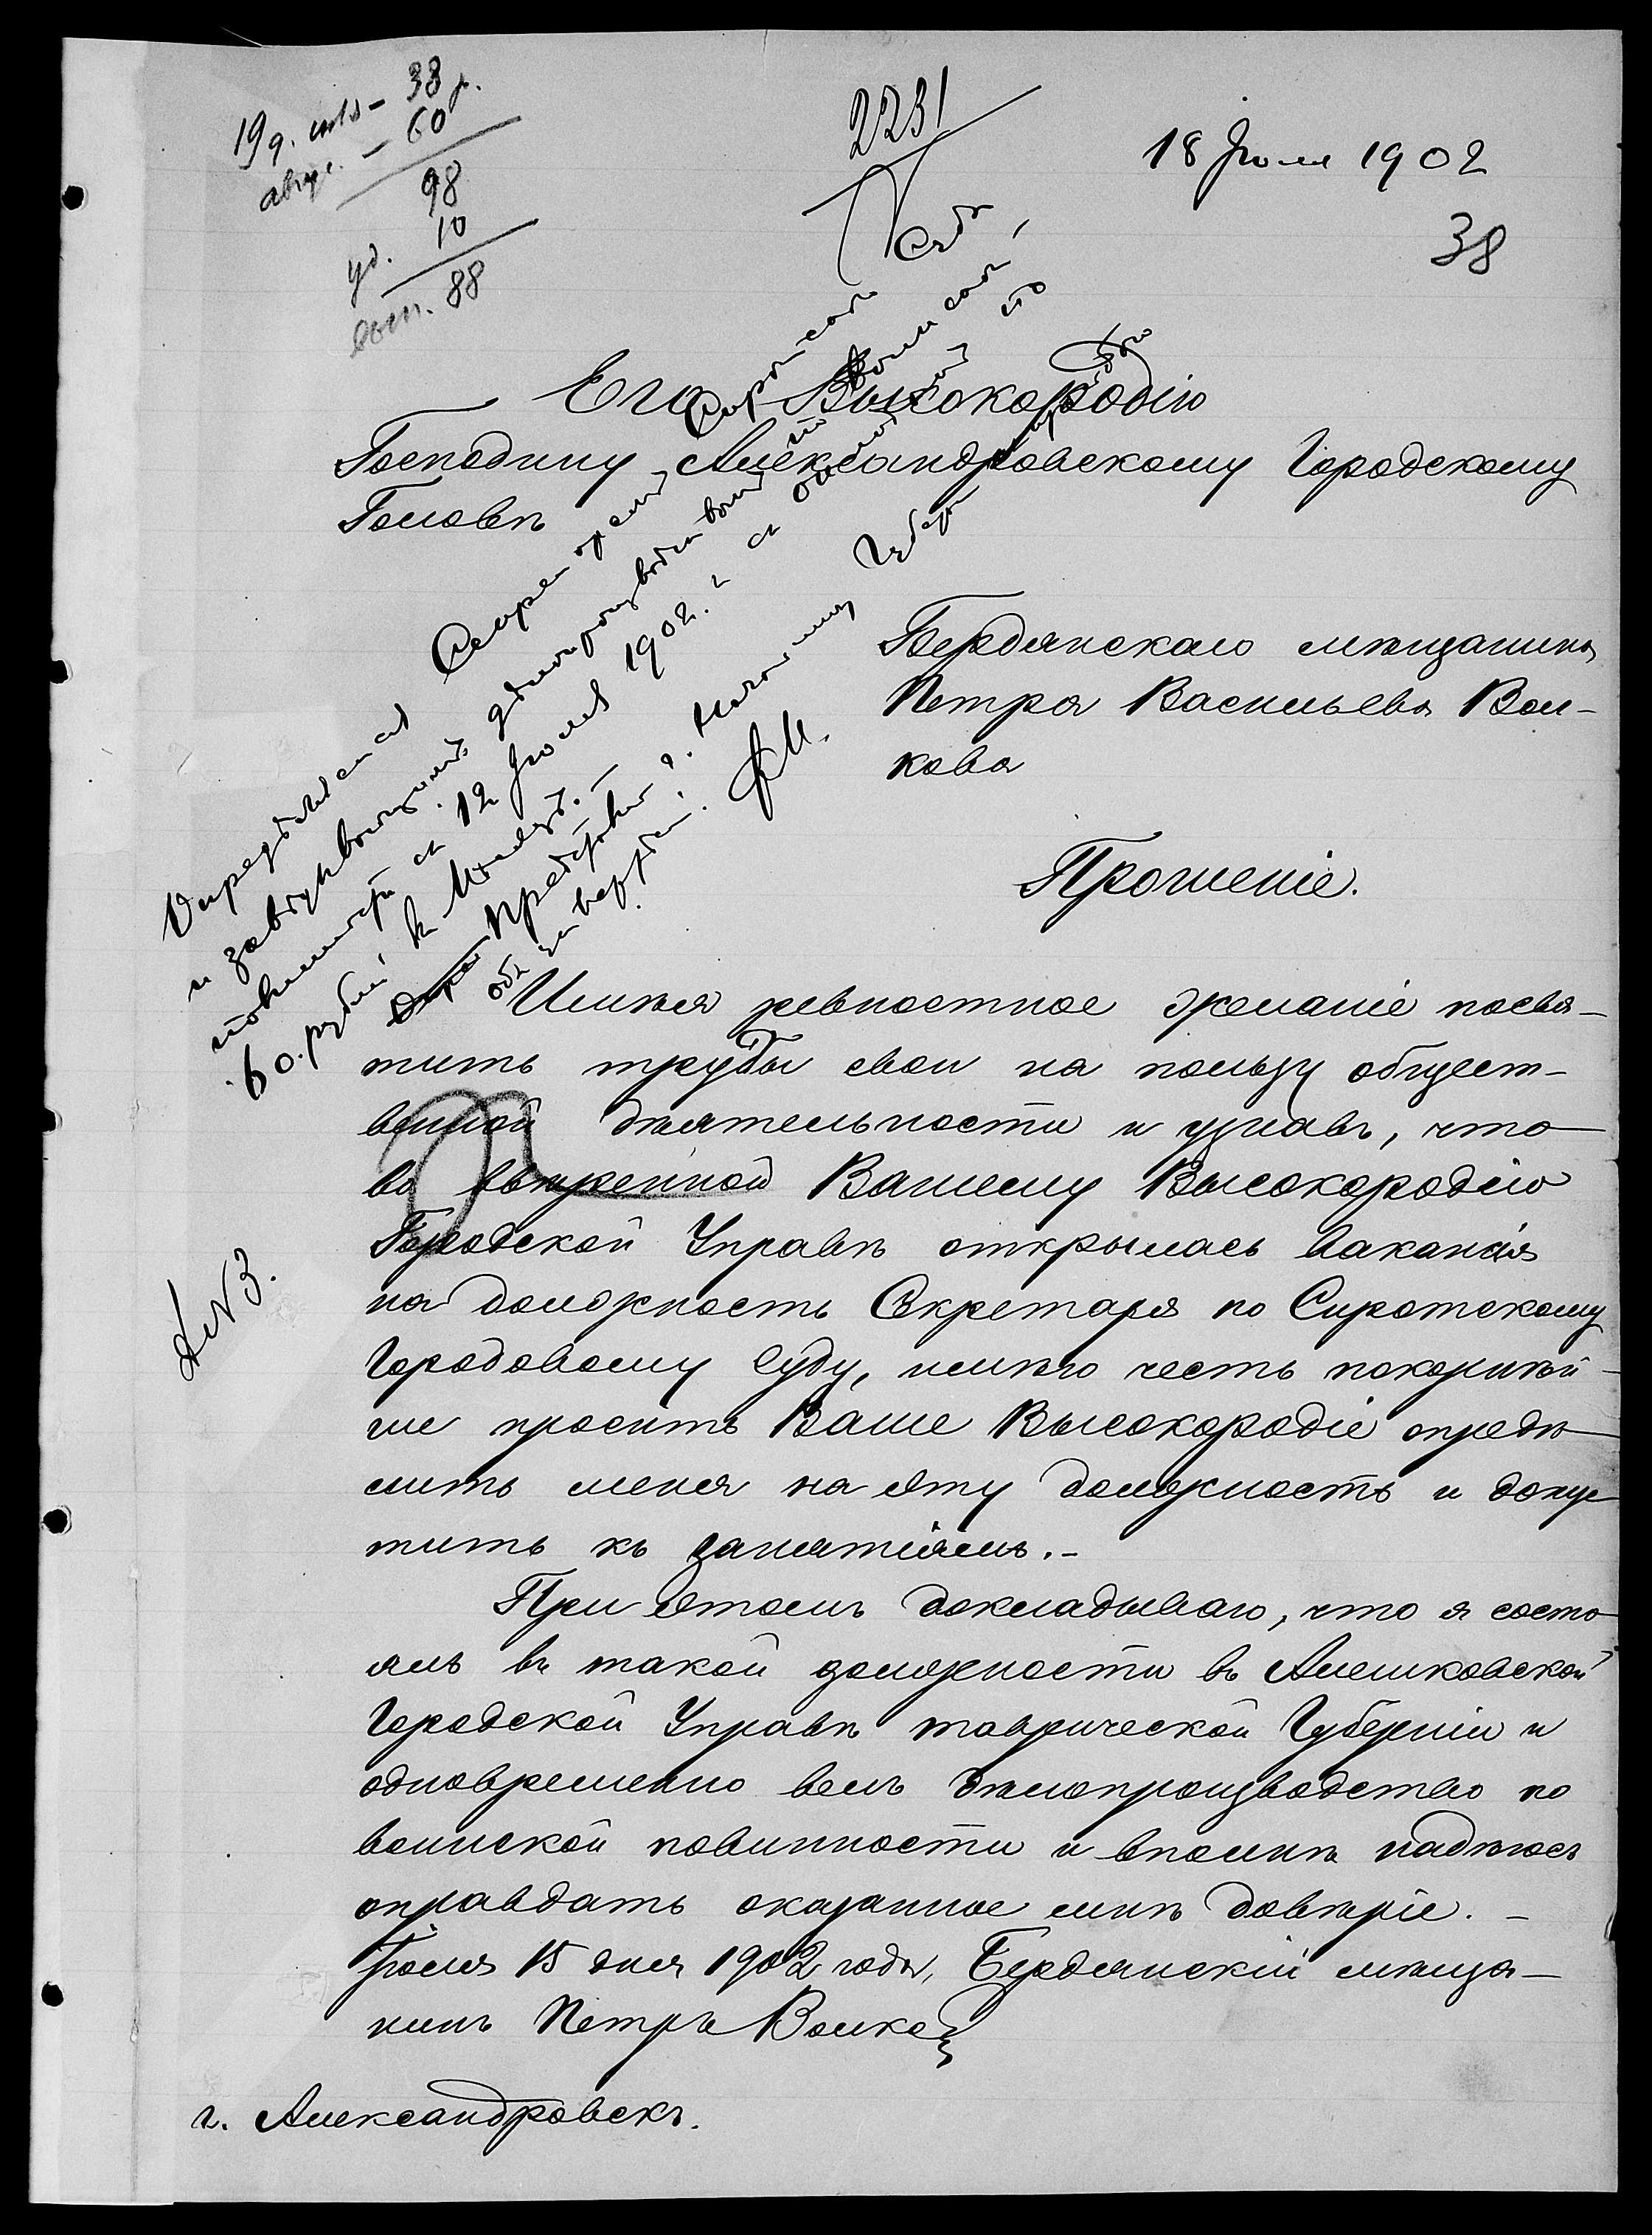 19 д. июля - 38
авгус. - 60 р.
98
уд. 10
выд. 88
2231
18 Июля 1902
38
Его Высокородію
Господину Александровскому Городскому
Головѣ
Бердянскаго мѣщанина
Петра Васильева Вол-
кова
Прошеніе.
Опредѣляется Секретаремъ Сиротскаго Суда
и завѣдывающимъ дѣлопроизводствомъ по воинской
повинности съ 12 Июля 1902 г. съ окладомъ по
60 рублей въ мѣсяцъ. -
Представить г. Начальнику Губерн
объ утвержден.
№ 3.
Имѣя ревностное желаніе посвя-
тить труды свои на пользу общест-
венной дѣятельности и узнавъ, что
во ввѣренной Вашему Высокородію
Городской Управѣ открылась вакансія
на должность Секретаря по Сиротскому
Городовому Суду, имѣю честь покорнѣй-
ше просить Ваше Высокородіе опредѣ-
лить меня на эту должность и допус-
тить къ занятіямъ. -
При этомъ докладываю, что я состо-
ялъ въ такой должности въ Алешковской
Городской Управѣ таврической Губерніи и
одновременно велъ дѣлопроизводство по
воинской повинности и вполнѣ надѣюсь
оправдать оказанное мнѣ довѣріе. -
Іюля 15 дня 1902 года, Бердянскій мѣща-
нинъ Петръ Волков
г. Александровскъ.